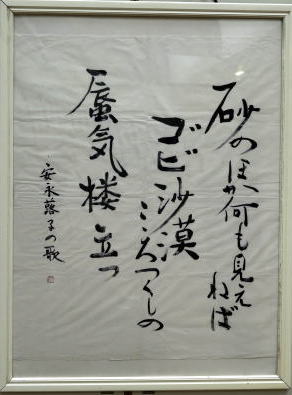 砂のほか何も見え
ねば
ゴビ沙漠
こころづくしの
蜃気楼立つ
安永蕗子の歌